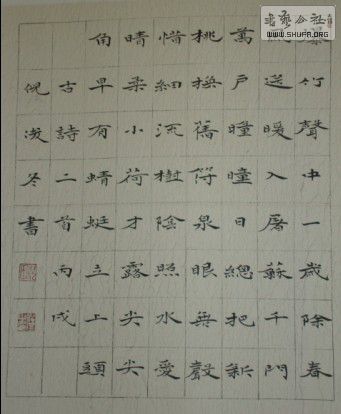 書藝公社
WWW.SHUFA.ORG
爆竹聲中一歲除春
風送暖入屠蘇千門
萬戶曈曈日總把新
桃換舊符泉眼無聲
惜細流樹陰照水愛
晴柔小荷才露尖尖
角早有蜻蜓立上頭
古詩二首丙戌
倪浚冬書